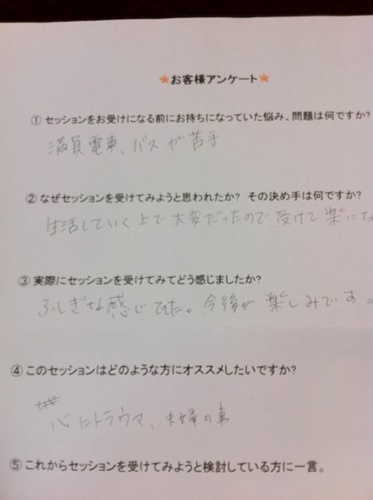 ★お客様アンケート★
① セッションをお受けになる前にお持ちになっていた悩み、問題は何ですか?
満員電車、バスが苦手
② なぜセッションを受けてみようと思われたか? その決め手は何ですか?
生活していく上で大変だったので受けて楽にな
③ 実際にセッションを受けてみてどう感じましたか?
ふしぎな感じでした。今後が楽しみです。
④ このセッションはどのような方にオススメしたいですか?
心にトラウマ、夫婦の事
⑤ これからセッションを受けてみようと検討している方に一言。